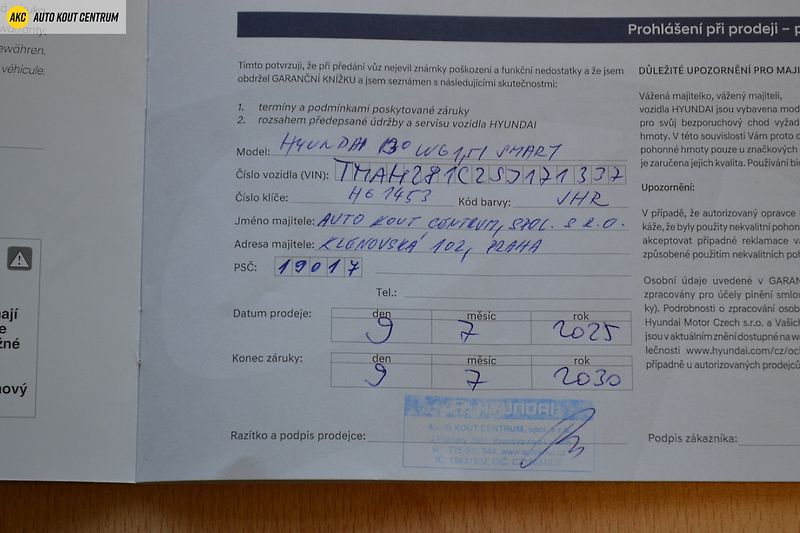 AKC AUTO KOUT CENTRUM
warranty,
ewähren,
véhicule.
ají
e
žné
nový
Prohlášení při prodeji – p
Tímto potvrzuji, že při předání vůz nejevil známky poškození a funkční nedostatky a že jsem
obdržel GARANČNÍ KNÍŽKU a jsem seznámen s následujícími skutečnostmi:
1. termíny a podmínkami poskytované záruky
2. rozsahem předepsané údržby a servisu vozidla HYUNDAI
Model: HYUNDAI i30 WG 1,5i SMART
Číslo vozidla (VIN): TMAH281C2SJ171337
Číslo klíče: H61453 Kód barvy: JHR
Jméno majitele: AUTO KOUT CENTRUM, SPOL. S R.O.
Adresa majitele: KLENOVSKÁ 102, PRAHA
PSČ: 19017
Tel.:
Datum prodeje: den měsíc rok
9 7 2025
Konec záruky: den měsíc rok
9 7 2030
HYUNDAI
AUTO KOUT CENTRUM, spol. s r.o.
Razítko a podpis prodejce:
Podpis zákazníka:
DŮLEŽITÉ UPOZORNĚNÍ PRO MAJI
Vážená majitelko, vážený majiteli,
vozidla HYUNDAI jsou vybavena mod
pro svůj bezporuchový chod vyžad
hmoty. V této souvislosti Vám proto d
pohonné hmoty pouze u značkových
je zaručena jejich kvalita. Používání bio
Upozornění:
V případě, že autorizovaný opravce
káže, že byly použity nekvalitní pohon
akceptovat případné reklamace v
způsobené použitím nekvalitních poh
Osobní údaje uvedené v GARAN
zpracovány pro účely plnění smlou
ky). Podrobnosti o zpracování osob
Hyundai Motor Czech s.r.o. a Vašich
jsou v aktuálním znění dostupné na w
lečnosti www.hyundai.com/cz/och
případně u autorizovaných prodejců